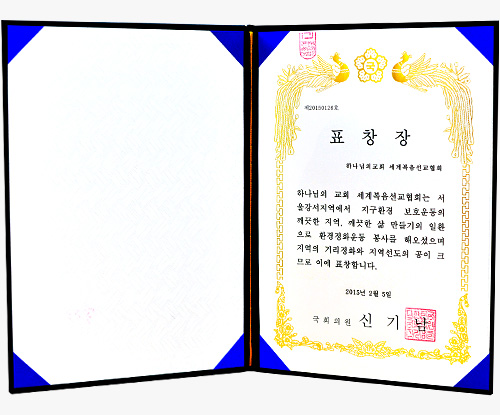 제20150126호
표 창 장
하나님의교회 세계복음선교협회
하나님의 교회 세계복음선교협회는 서
울강서지역에서 지구환경 보호운동의
깨끗한 지역, 깨끗한 삶 만들기의 일환
으로 환경정화운동 봉사를 해오셨으며
지역의 거리정화와 지역선도의 공이 크
므로 이에 표창합니다.
2015년 2월 5일
국회의원 신 기 남